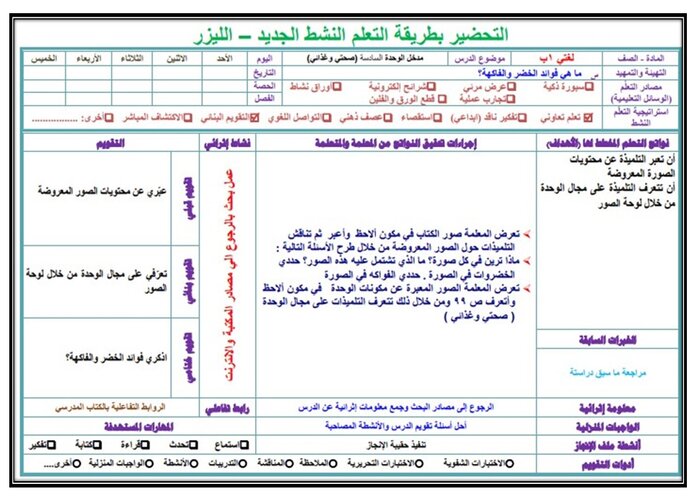 التحضير بطريقة التعلم النشط الجديد – الليزر
المادة - الصف
لغتي ١ب
موضوع الدرس
مدخل الوحدة السادسة (صحتي وغذائي)
اليوم
الأحد
الاثنين
الثلاثاء
الأربعاء
الخميس
التهيئة والتمهيد
س ما هي فوائد الخضر والفاكهة؟
التاريخ
مصادر التعلم
(الوسائل التعليمية)
سبورة ذكية
عرض مرئي
شرائح إلكترونية
أوراق نشاط
تجارب عملية
قطع الورق والفلين
الحصة
الفصل
استراتيجية التعلم
النشط
تعلم تعاوني
تفكير ناقد (ابداعي)
استقصاء
عصف ذهني
التواصل اللغوي
التقويم البنائي
الاكتشاف المباشر
أخرى: ................
نواتج التعلم المخطط لها (الأهداف)
إجراءات تحقيق النواتج من المعلمة والمتعلمة
نشاط إثرائي
التقويم
أن تعبر التلميذة عن محتويات
الصورة المعروضة
أن تتعرف التلميذة على مجال الوحدة
من خلال لوحة الصور
تعرض المعلمة صور الكتاب في مكون ألاحظ وأعبر ثم تناقش
التلميذات حول الصور المعروضة من خلال طرح الأسئلة التالية :
ماذا ترين في كل صورة؟ ما الذي تشتمل عليه هذه الصور؟ حددي
الخضروات في الصورة . حددي الفواكه في الصورة
تعرض المعلمة الصور المعبرة عن مكونات الوحدة في مكون ألاحظ
وأتعرف ص ٩٩ ومن خلال ذلك تتعرف التلميذات على مجال الوحدة
( صحتي وغذائي )
عمل بحث بالرجوع الي مصادر المكتبة والانترنت
تقويم قبلي
عبّري عن محتويات الصور المعروضة
تقويم بنائي
تعرّفي على مجال الوحدة من خلال لوحة
الصور
تقويم ختامي
اذكري فوائد الخضر والفاكهة؟
الخبرات السابقة
مراجعة ما سبق دراستة
معلومة إثرائية
الرجوع إلى مصادر البحث وجمع معلومات إثرائية عن الدرس
رابط تفاعلي
الروابط التفاعلية بالكتاب المدرسي
الواجبات المنزلية
أحل أسئلة تقويم الدرس والأنشطة المصاحبة
المهارات المستهدفة
أنشطة ملف الإنجاز
تنفيذ حقيبة الإنجاز
استماع
تحدث
قراءة
كتابة
تفكير
أدوات التقويم
الاختبارات الشفوية
الاختبارات التحريرية
الملاحظة
المناقشة
التدريبات
الأنشطة
الواجبات المنزلية
أخرى....